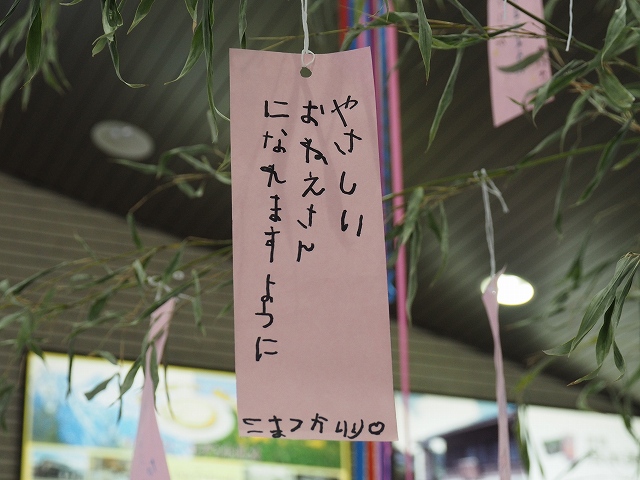 やさしい
おねえさん
になれますように
こまつかりん